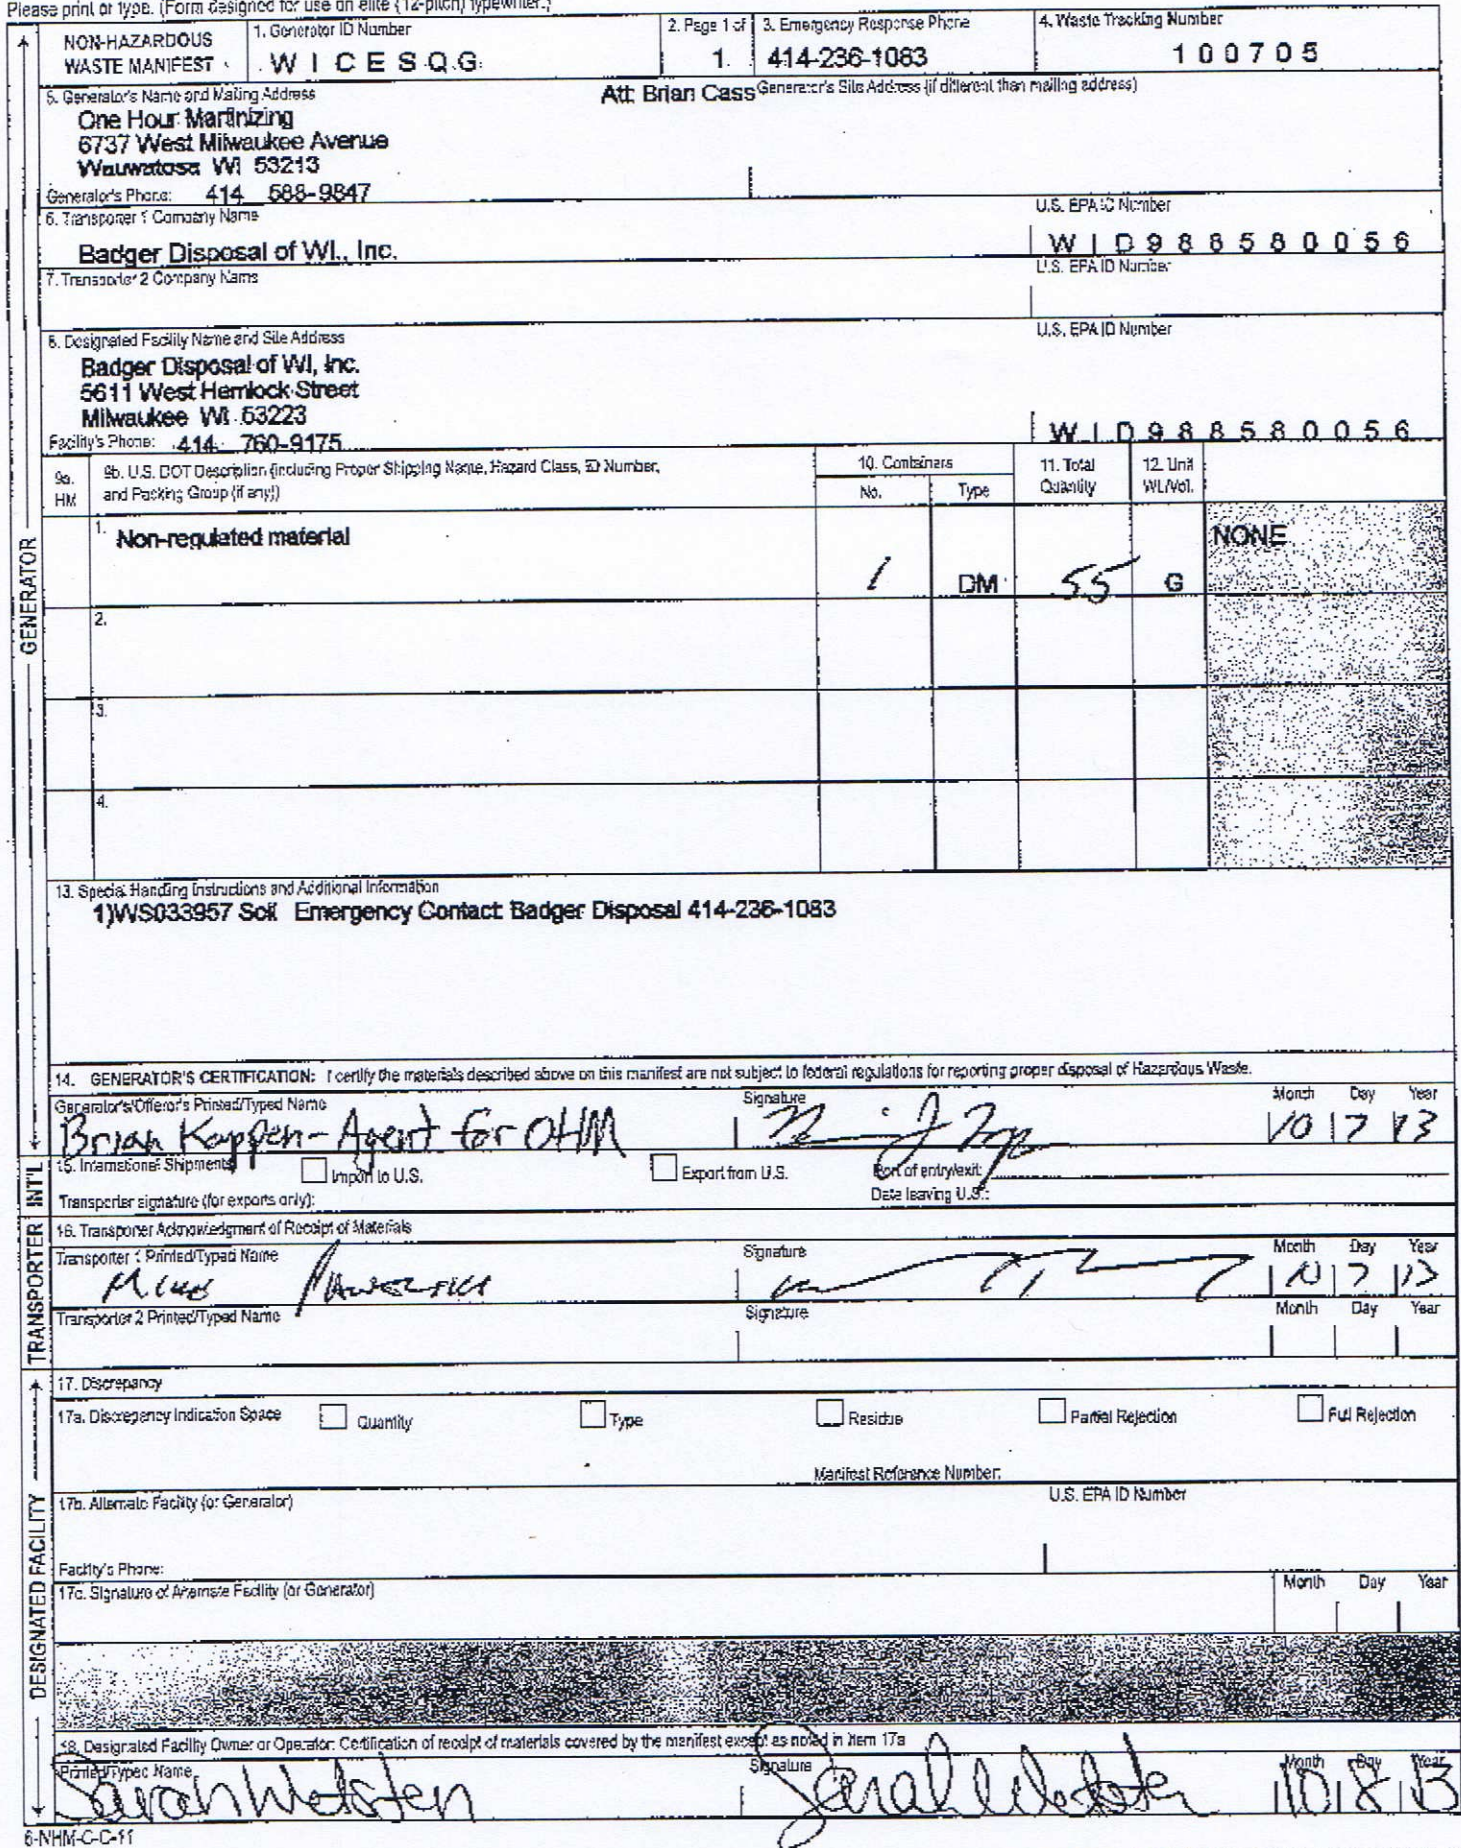 Please print or type. (Form designed for use on elite (12-pitch) typewriter.)
NON-HAZARDOUS WASTE MANIFEST
1. Generator ID Number
W I C E S Q G
2. Page 1 of
1
3. Emergency Response Phone
414-236-1083
4. Waste Tracking Number
1 0 0 7 0 5
5. Generator's Name and Mailing Address
Att: Brian Cass
Generator's Site Address (if different than mailing address)
One Hour Martinizing
6737 West Milwaukee Avenue
Wauwatosa WI 53213
Generator's Phone: 414 588-9847
6. Transporter 1 Company Name
U.S. EPA ID Number
Badger Disposal of WI., Inc.
W I D 9 8 8 5 8 0 0 5 6
7. Transporter 2 Company Name
U.S. EPA ID Number
8. Designated Facility Name and Site Address
U.S. EPA ID Number
Badger Disposal of WI, Inc.
5611 West Hemlock Street
Milwaukee WI 53223
Facility's Phone: 414 760-9175
W I D 9 8 8 5 8 0 0 5 6
9a. HM
9b. U.S. DOT Description (including Proper Shipping Name, Hazard Class, ID Number, and Packing Group (if any))
10. Containers
No.
Type
11. Total Quantity
12. Unit Wt./Vol.
1. Non-regulated material
1
DM
55
G
NONE
2.
3.
4.
13. Special Handling Instructions and Additional Information
1)WS033957 Soil Emergency Contact: Badger Disposal 414-236-1083
14. GENERATOR'S CERTIFICATION: I certify the materials described above on this manifest are not subject to federal regulations for reporting proper disposal of Hazardous Waste.
Generator's/Offeror's Printed/Typed Name
Signature
Month Day Year
Brian Kappen - Agent for OHM
10 7 13
15. International Shipments
Import to U.S.
Export from U.S.
Port of entry/exit:
Transporter signature (for exports only):
Date leaving U.S.:
16. Transporter Acknowledgment of Receipt of Materials
Transporter 1 Printed/Typed Name
Signature
Month Day Year
Mike
10 7 13
Transporter 2 Printed/Typed Name
Signature
Month Day Year
17. Discrepancy
17a. Discrepancy Indication Space
Quantity
Type
Residue
Partial Rejection
Full Rejection
Manifest Reference Number:
17b. Alternate Facility (or Generator)
U.S. EPA ID Number
Facility's Phone:
17c. Signature of Alternate Facility (or Generator)
Month Day Year
18. Designated Facility Owner or Operator: Certification of receipt of materials covered by the manifest except as noted in Item 17a
Printed/Typed Name
Signature
Month Day Year
Sarah
Sarah
10 8 13
GENERATOR
INT'L
TRANSPORTER
DESIGNATED FACILITY
6-NHM-C-C-11